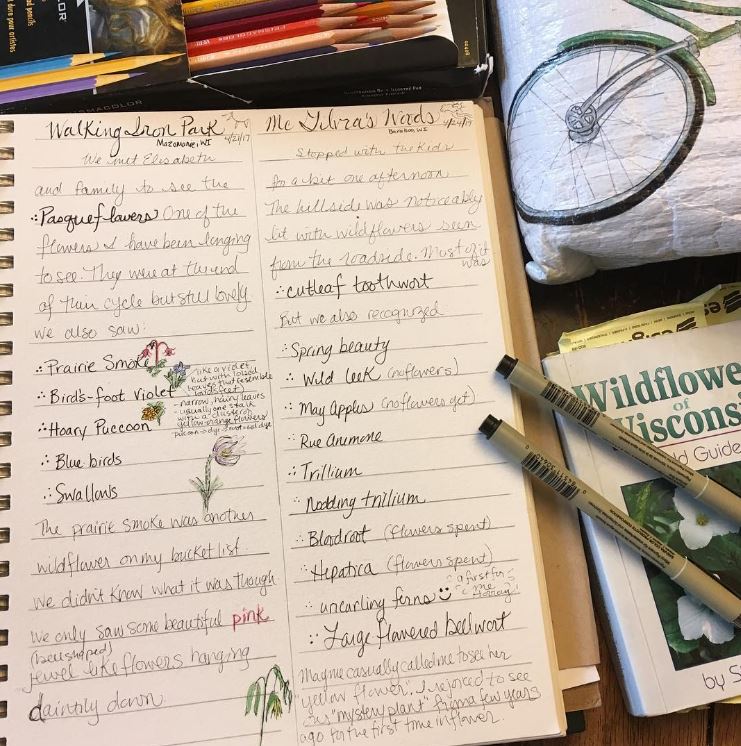 Walking Iron Park
Mazomanie, WI
4/21/17
We met Elisabeth
and family to see the
∴ Pasqueflowers One of the
flowers I have been longing
to see. They were at the end
of their cycle but still lovely
we also saw:
∴ Prairie Smoke
∴ Bird's-foot violet
like a violet
but with lobed
leaves that resemble
bird's feet)
∴ Hoary Puccoon
- narrow, hairy leaves
- usually one stalk
with a cluster of
yellow-orange flowers
puccoon → dye → root = red dye
∴ Blue birds
∴ Swallows
The prairie smoke was another
wildflower on my bucket list.
We didn't know what it was though
We only saw some beautiful pink
(bell shaped)
jewel like flowers hanging
daintily down.
Baraboo, WI
4/24/17
Stopped with the kids
for a bit one afternoon.
The hillside was noticeably
lit with wildflowers seen
from the roadside. Most of it
was
∴ cutleaf toothwort
But we also recognized
∴ Spring beauty
∴ Wild leek (no flowers)
∴ May Apples (no flowers yet)
∴ Rue Anemone
∴ Trillium
∴ Nodding trillium
∴ Bloodroot (flowers spent)
∴ Hepatica (flowers spent)
∴ uncurling ferns
a first for
me
∴ Large flowered bellwort
casually called me to see her
"yellow flower". I rejoiced to see
"mystery plant" from a few years
ago for the first time in flower.
Wildflowe
of
Wisconsi
ld Guide
by S